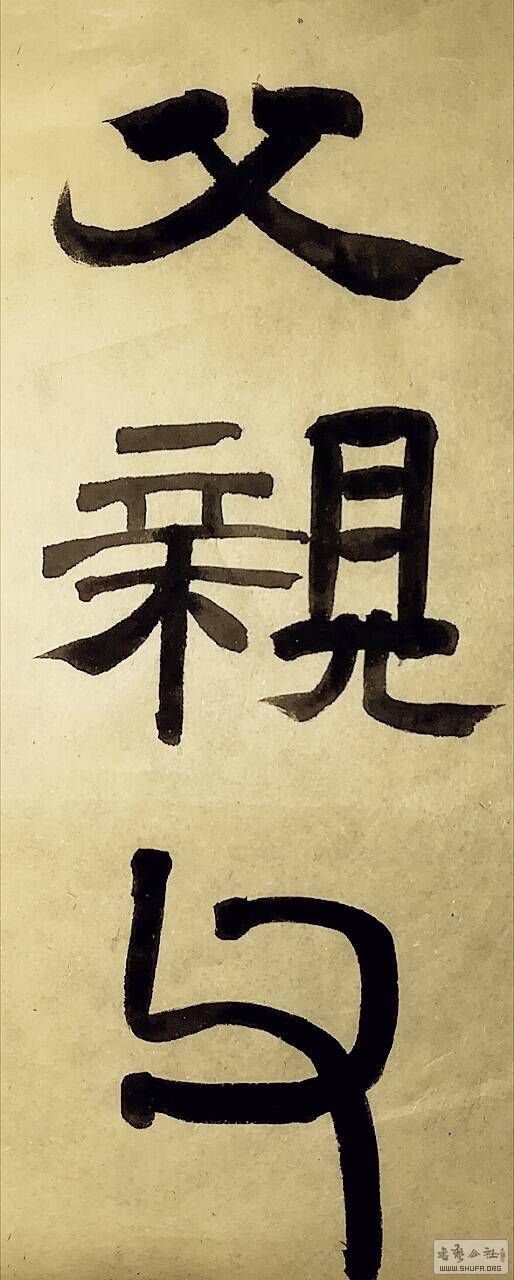 父
親
書藝公社
WWW.SHUFA.ORG